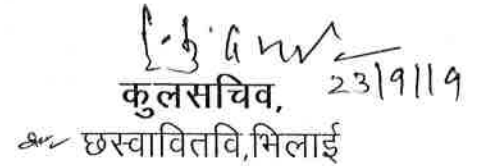 कुलसचिव,
23/9/19
छस्वावितवि,भिलाई